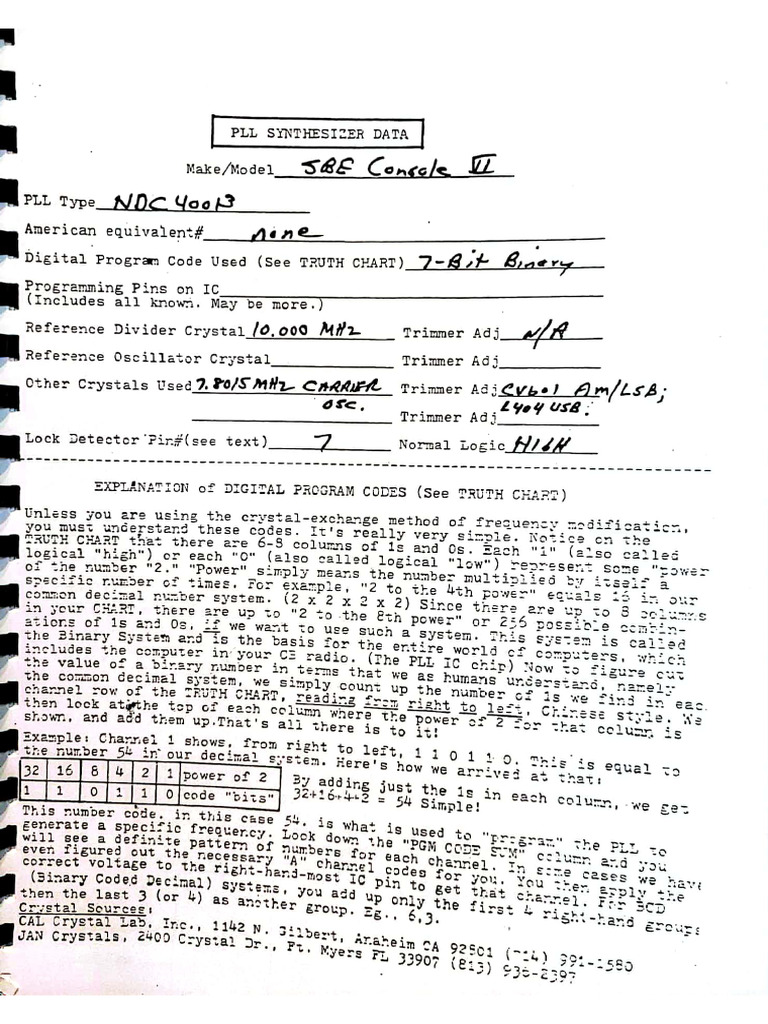 PLL SYNTHESIZER DATA
Make/Model SBE Console VI
PLL Type NDC40013
American equivalent# none
Digital Program Code Used (See TRUTH CHART) 7-Bit Binary
Programming Pins on IC
(Includes all known. May be more.)
Reference Divider Crystal 10.000 MHz Trimmer Adj N/A
Reference Oscillator Crystal Trimmer Adj
Other Crystals Used 7.8015 MHz CARRIER Trimmer Adj CV601 AM/LSB;
OSC. Trimmer Adj L404 USB.
Lock Detector Pin#(see text) 7 Normal Logic HIGH
EXPLANATION of DIGITAL PROGRAM CODES (See TRUTH CHART)
Unless you are using the crystal-exchange method of frequency modification,
you must understand these codes. It's really very simple. Notice on the
TRUTH CHART that there are 6-8 columns of 1s and 0s. Each "1" (also called
logical "high") or each "0" (also called logical "low") represent some "power
of the number "2." "Power" simply means the number multiplied by itself a
specific number of times. For example, "2 to the 4th power" equals 16 in our
common decimal number system. (2 x 2 x 2 x 2) Since there are up to 8 columns
in your CHART, there are up to "2 to the 8th power" or 256 possible combin-
ations of 1s and 0s, if we want to use such a system. This system is called
the Binary System and is the basis for the entire world of computers, which
includes the computer in your CB radio. (The PLL IC chip) Now to figure out
the value of a binary number in terms that we as humans understand, namely
the common decimal system, we simply count up the number of 1s we find in eac
channel row of the TRUTH CHART, reading from right to left, Chinese style. We
then look at the top of each column where the power of 2 for that column is
shown, and add them up.That's all there is to it!
Example: Channel 1 shows, from right to left, 1 1 0 1 1 0. This is equal to
the number 54 in our decimal system. Here's how we arrived at that:
32 16 8 4 2 1 power of 2
1 1 0 1 1 0 code "bits"
By adding just the 1s in each column, we get
32+16+4+2 = 54 Simple!
This number code, in this case 54, is what is used to "program" the PLL to
generate a specific frequency. Lock down the "PGM CODE SUM" column and you
will see a definite pattern of numbers for each channel. In some cases we have
even figured out the necessary "A" channel codes for you. You then apply the
correct voltage to the right-hand-most IC pin to get that channel. For BCD
(Binary Coded Decimal) systems, you add up only the first 4 right-hand groups
then the last 3 (or 4) as another group. Eg., 6,3.
Crystal Sources:
CAL Crystal Lab, Inc., 1142 N. Gilbert, Anaheim CA 92801 (714) 991-1580
JAN Crystals, 2400 Crystal Dr., Ft. Myers FL 33907 (813) 936-2397